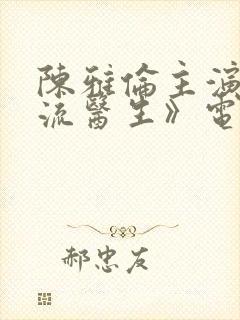 陳雅倫主演
流醫生》電
郝忠友